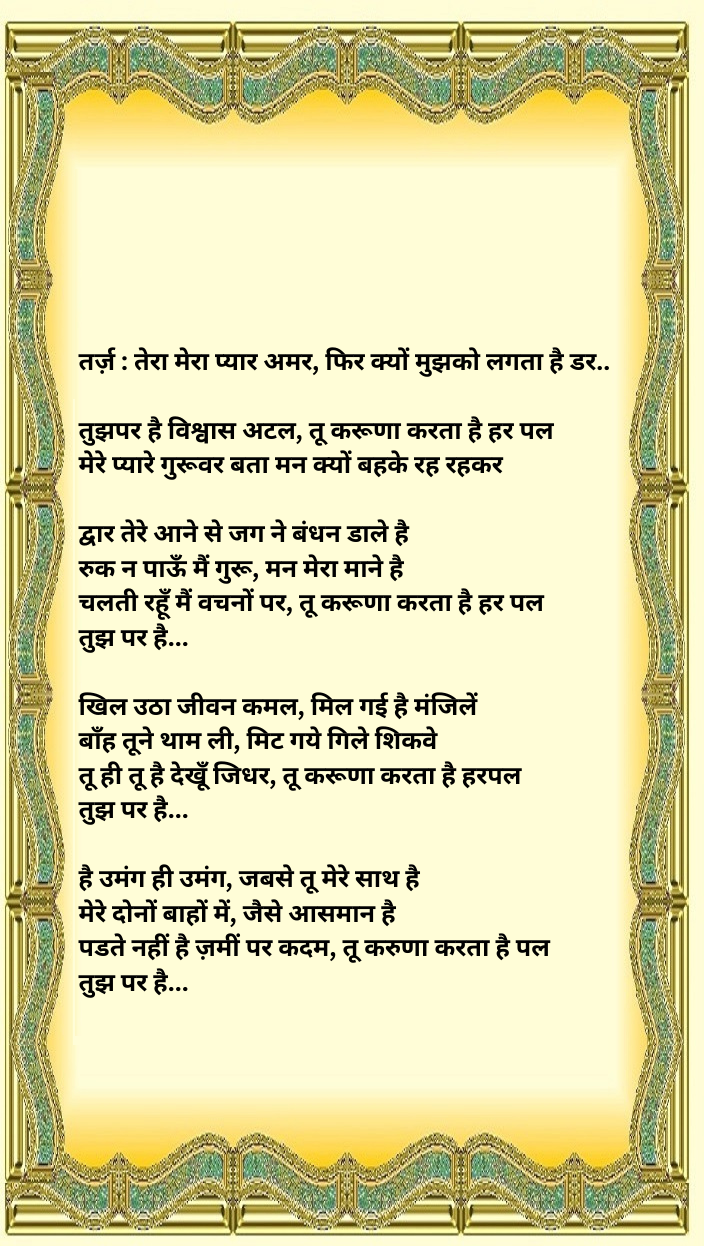 तर्ज़ : तेरा मेरा प्यार अमर, फिर क्यों मुझको लगता है डर..
तुझपर है विश्वास अटल, तू करूणा करता है हर पल
मेरे प्यारे गुरूवर बता मन क्यों बहके रह रहकर
द्वार तेरे आने से जग ने बंधन डाले है
रुक न पाऊँ मैं गुरू, मन मेरा माने है
चलती रहूँ मैं वचनों पर, तू करूणा करता है हर पल
तुझ पर है...
खिल उठा जीवन कमल, मिल गई है मंजिलें
बाँह तूने थाम ली, मिट गये गिले शिकवे
तू ही तू है देखूँ जिधर, तू करूणा करता है हरपल
तुझ पर है...
है उमंग ही उमंग, जबसे तू मेरे साथ है
मेरे दोनों बाहों में, जैसे आसमान है
पडते नहीं है ज़मीं पर कदम, तू करुणा करता है पल
तुझ पर है...